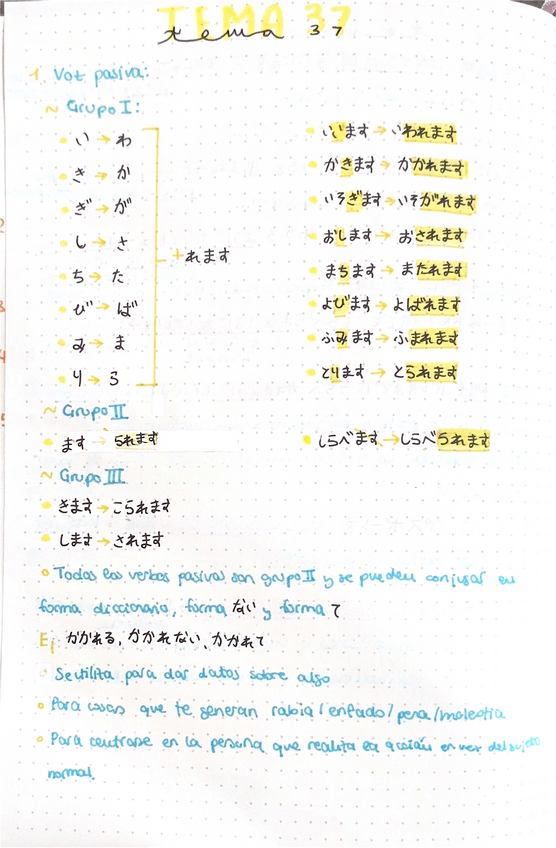 TEMA 37
tema 37
1. Voz pasiva:
~ Grupo I:
い → わ
き → か
ぎ → が
し → さ
ち → た
び → ば
み → ま
り → ら
+れます
いいます → いわれます
かきます → かかれます
いそぎます → いそがれます
おします → おされます
まちます → またれます
よびます → よばれます
ふみます → ふまれます
とります → とられます
~ Grupo II
ます → られます
しらべます → しらべられます
~ Grupo III
きます → こられます
します → されます
Todos los verbos pasivos son grupo II y se pueden conjugar en
forma diccionario, forma ない y forma て
Ej かかれる, かかれない, かかれて
Se utiliza para dar datos sobre algo
Para cosas que te generan rabia/enfado/pena/molestia
Para centrarse en la persona que realiza la acción en vez del sujeto
normal.